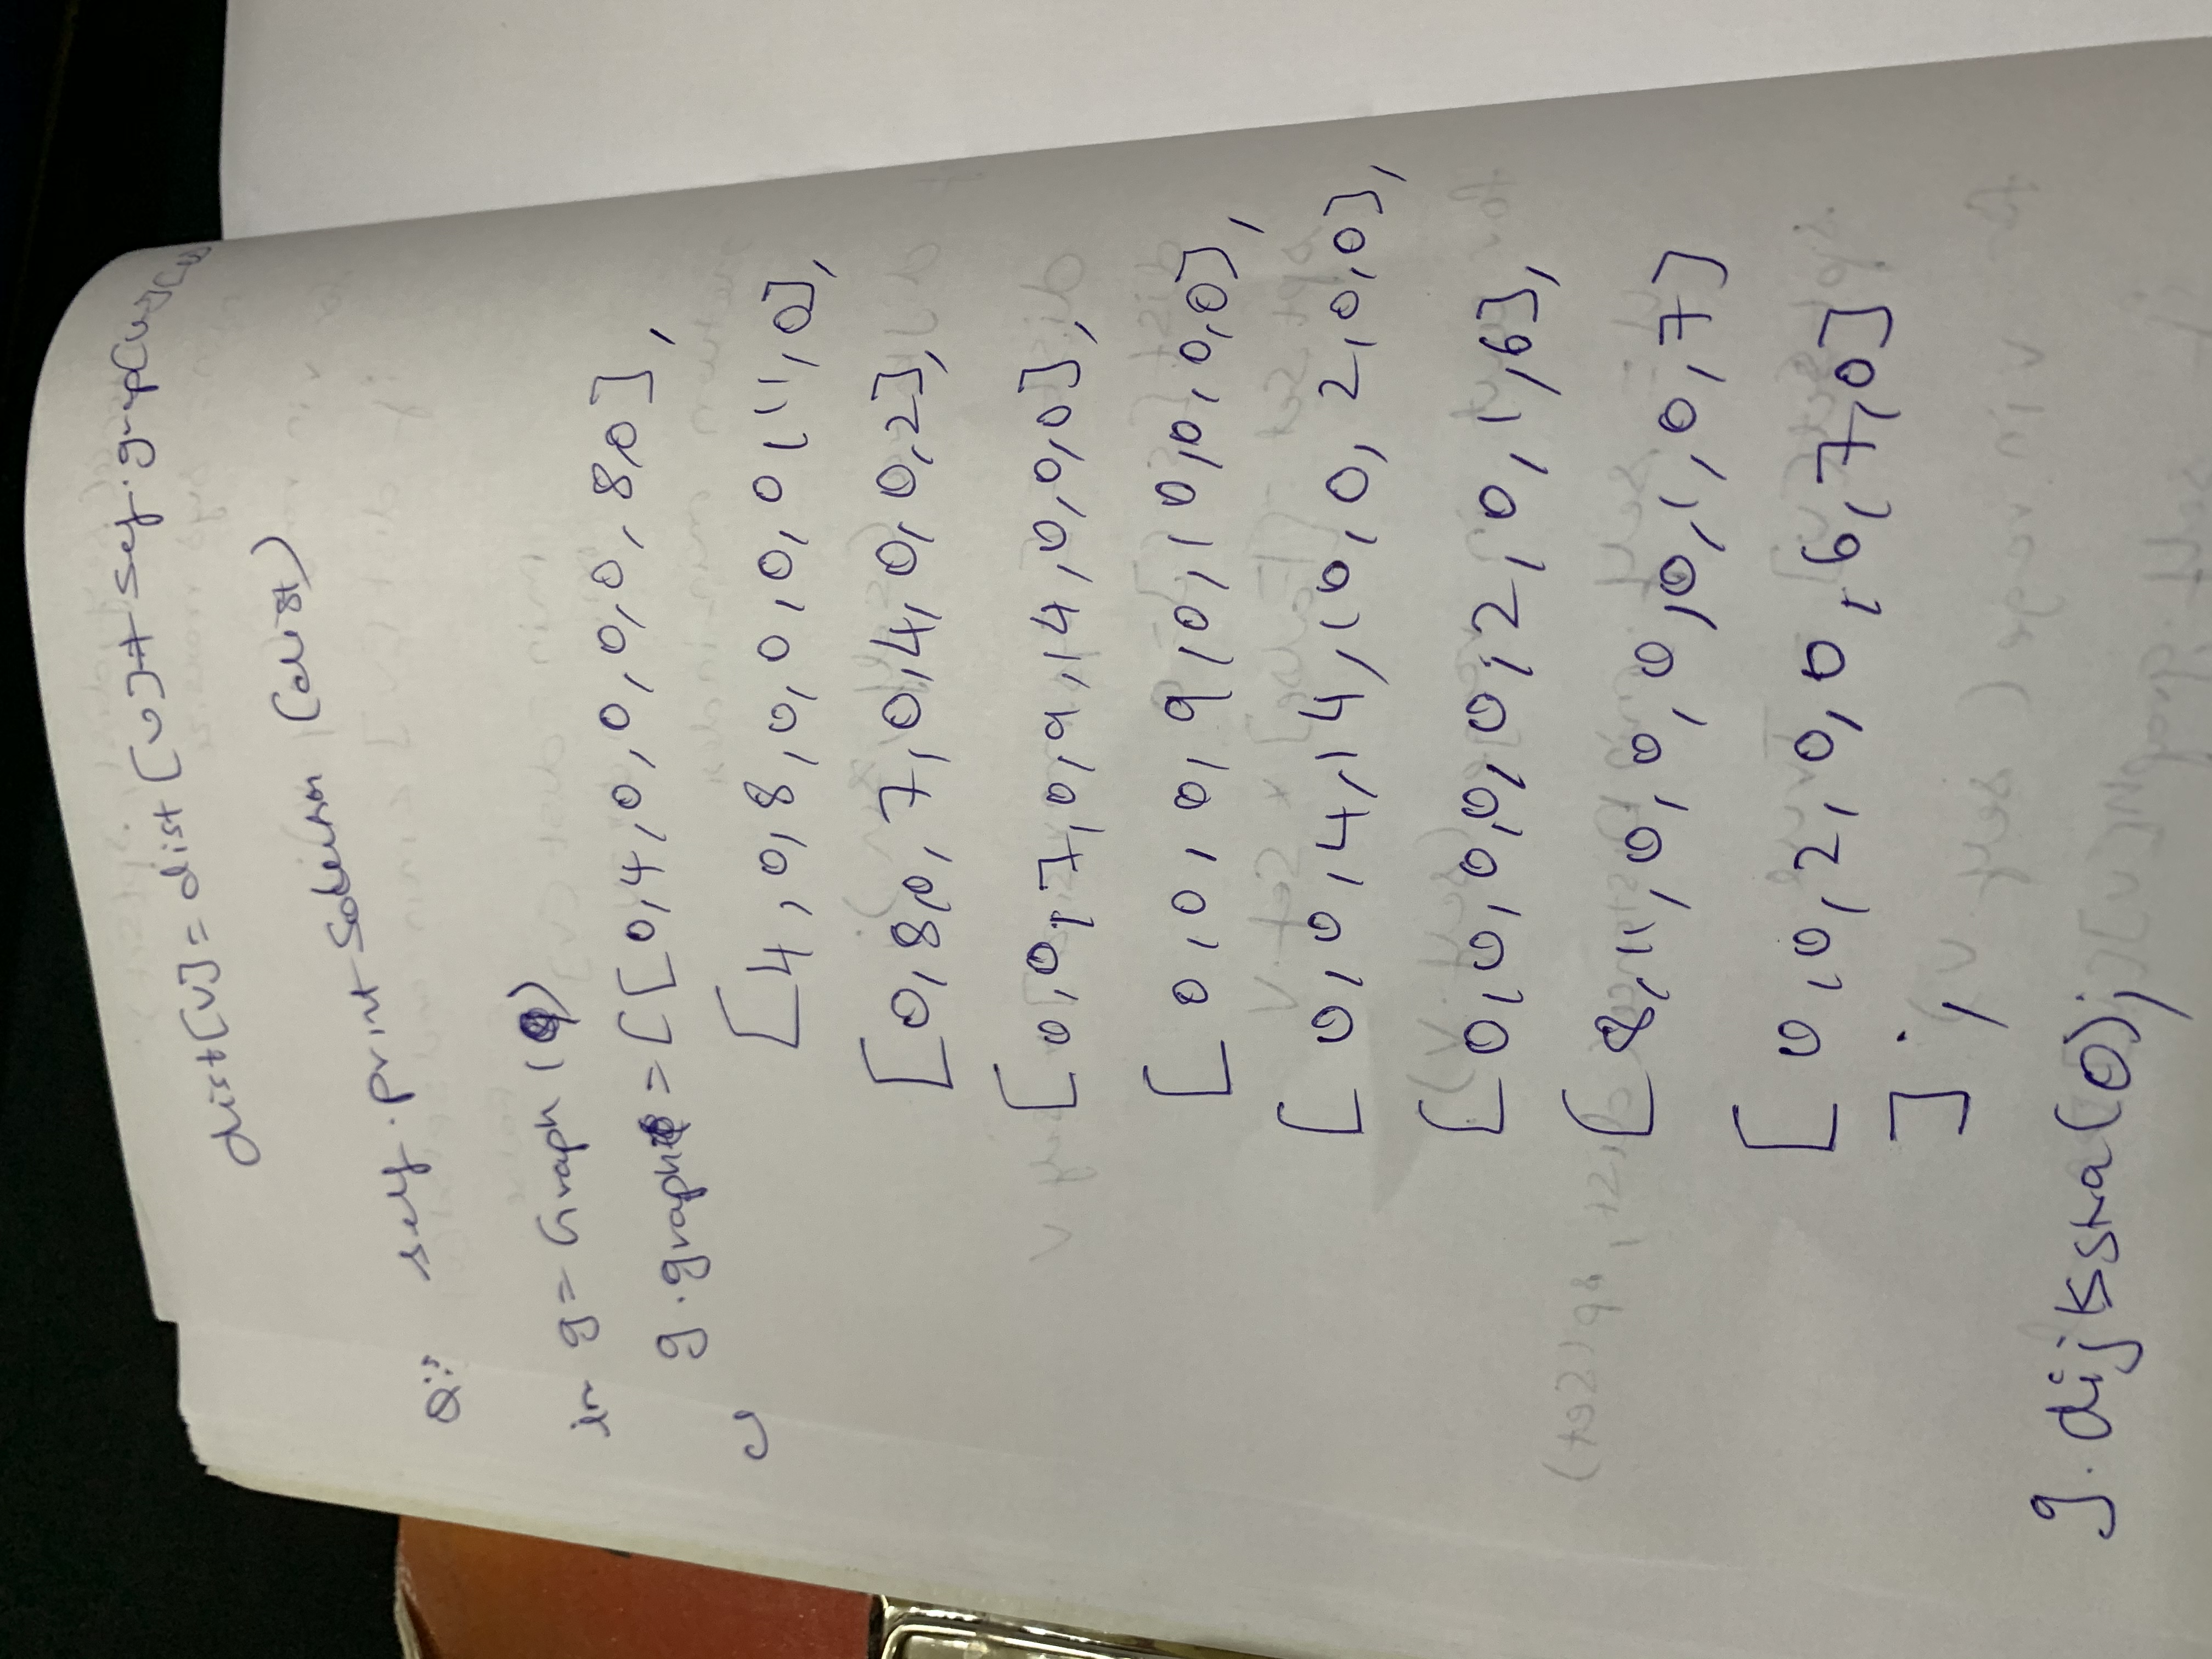 dist[v] = dist[u] + self.grap[u][v]
self.printSolution (dist)
g = Graph (9)
g.graph = [[0,4,0,0,0,0,8,0],
[4,0,8,0,0,0,0,11,0],
[0,8,0,7,0,4,0,0,2],
[0,0,7,0,9,14,0,0,0],
[0,0,0,9,0,10,0,0,0],
[0,0,4,14,10,0,2,0,0],
[0,0,0,0,0,2,0,1,6],
[8,11,0,0,0,0,1,0,7]
[0,0,2,0,0,6,7,0]
];
g.dijkstra(0);